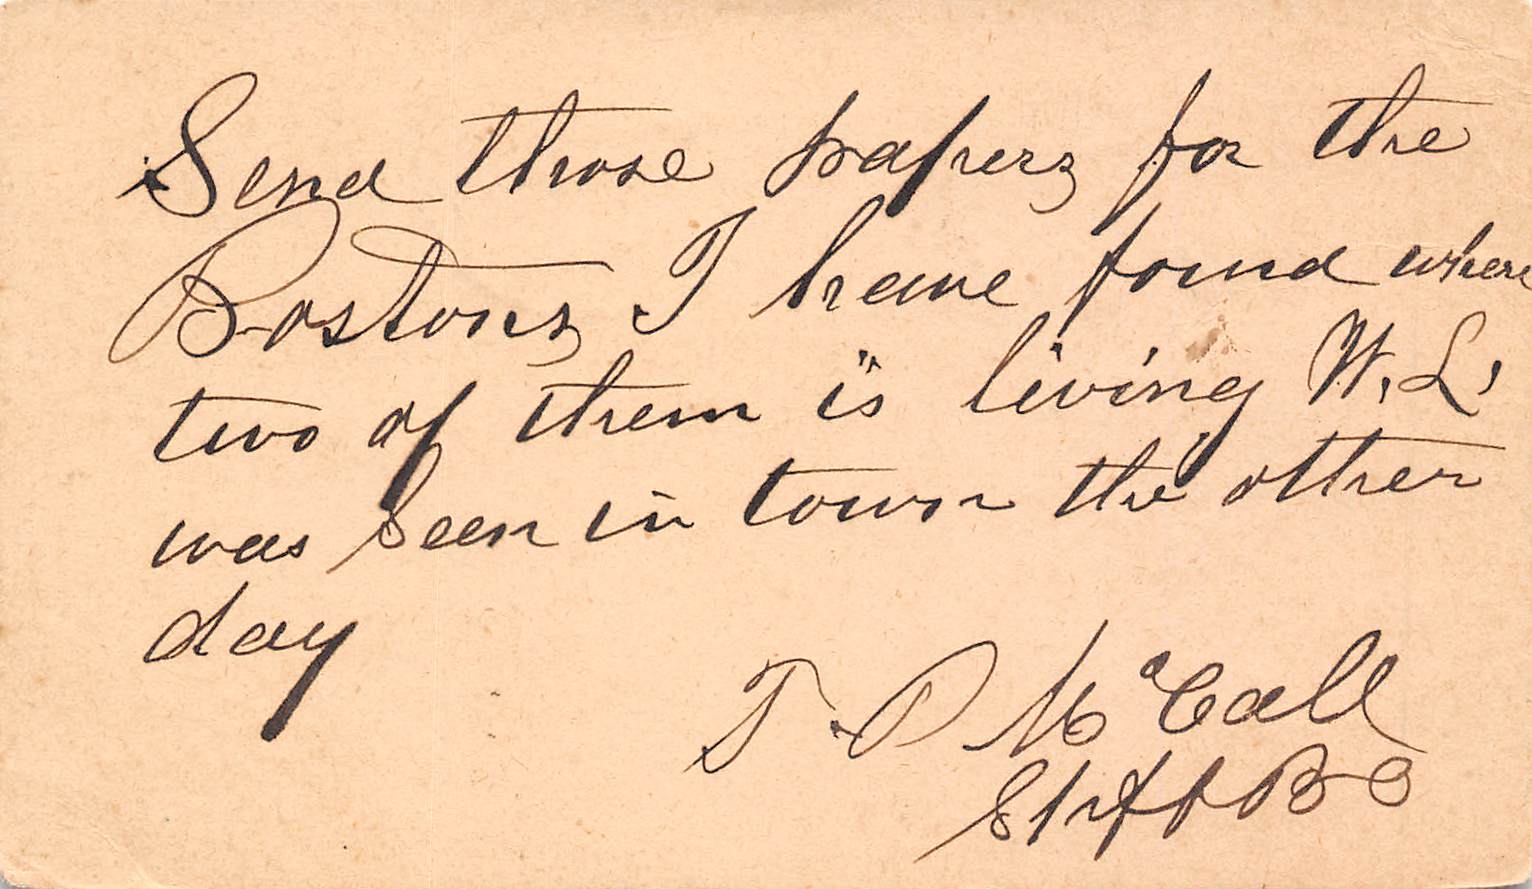 Send those papers for the
Bostons, I have found where
two of them is living W. L.
was seen in town the other
day
T. P. McCall
Shff B C